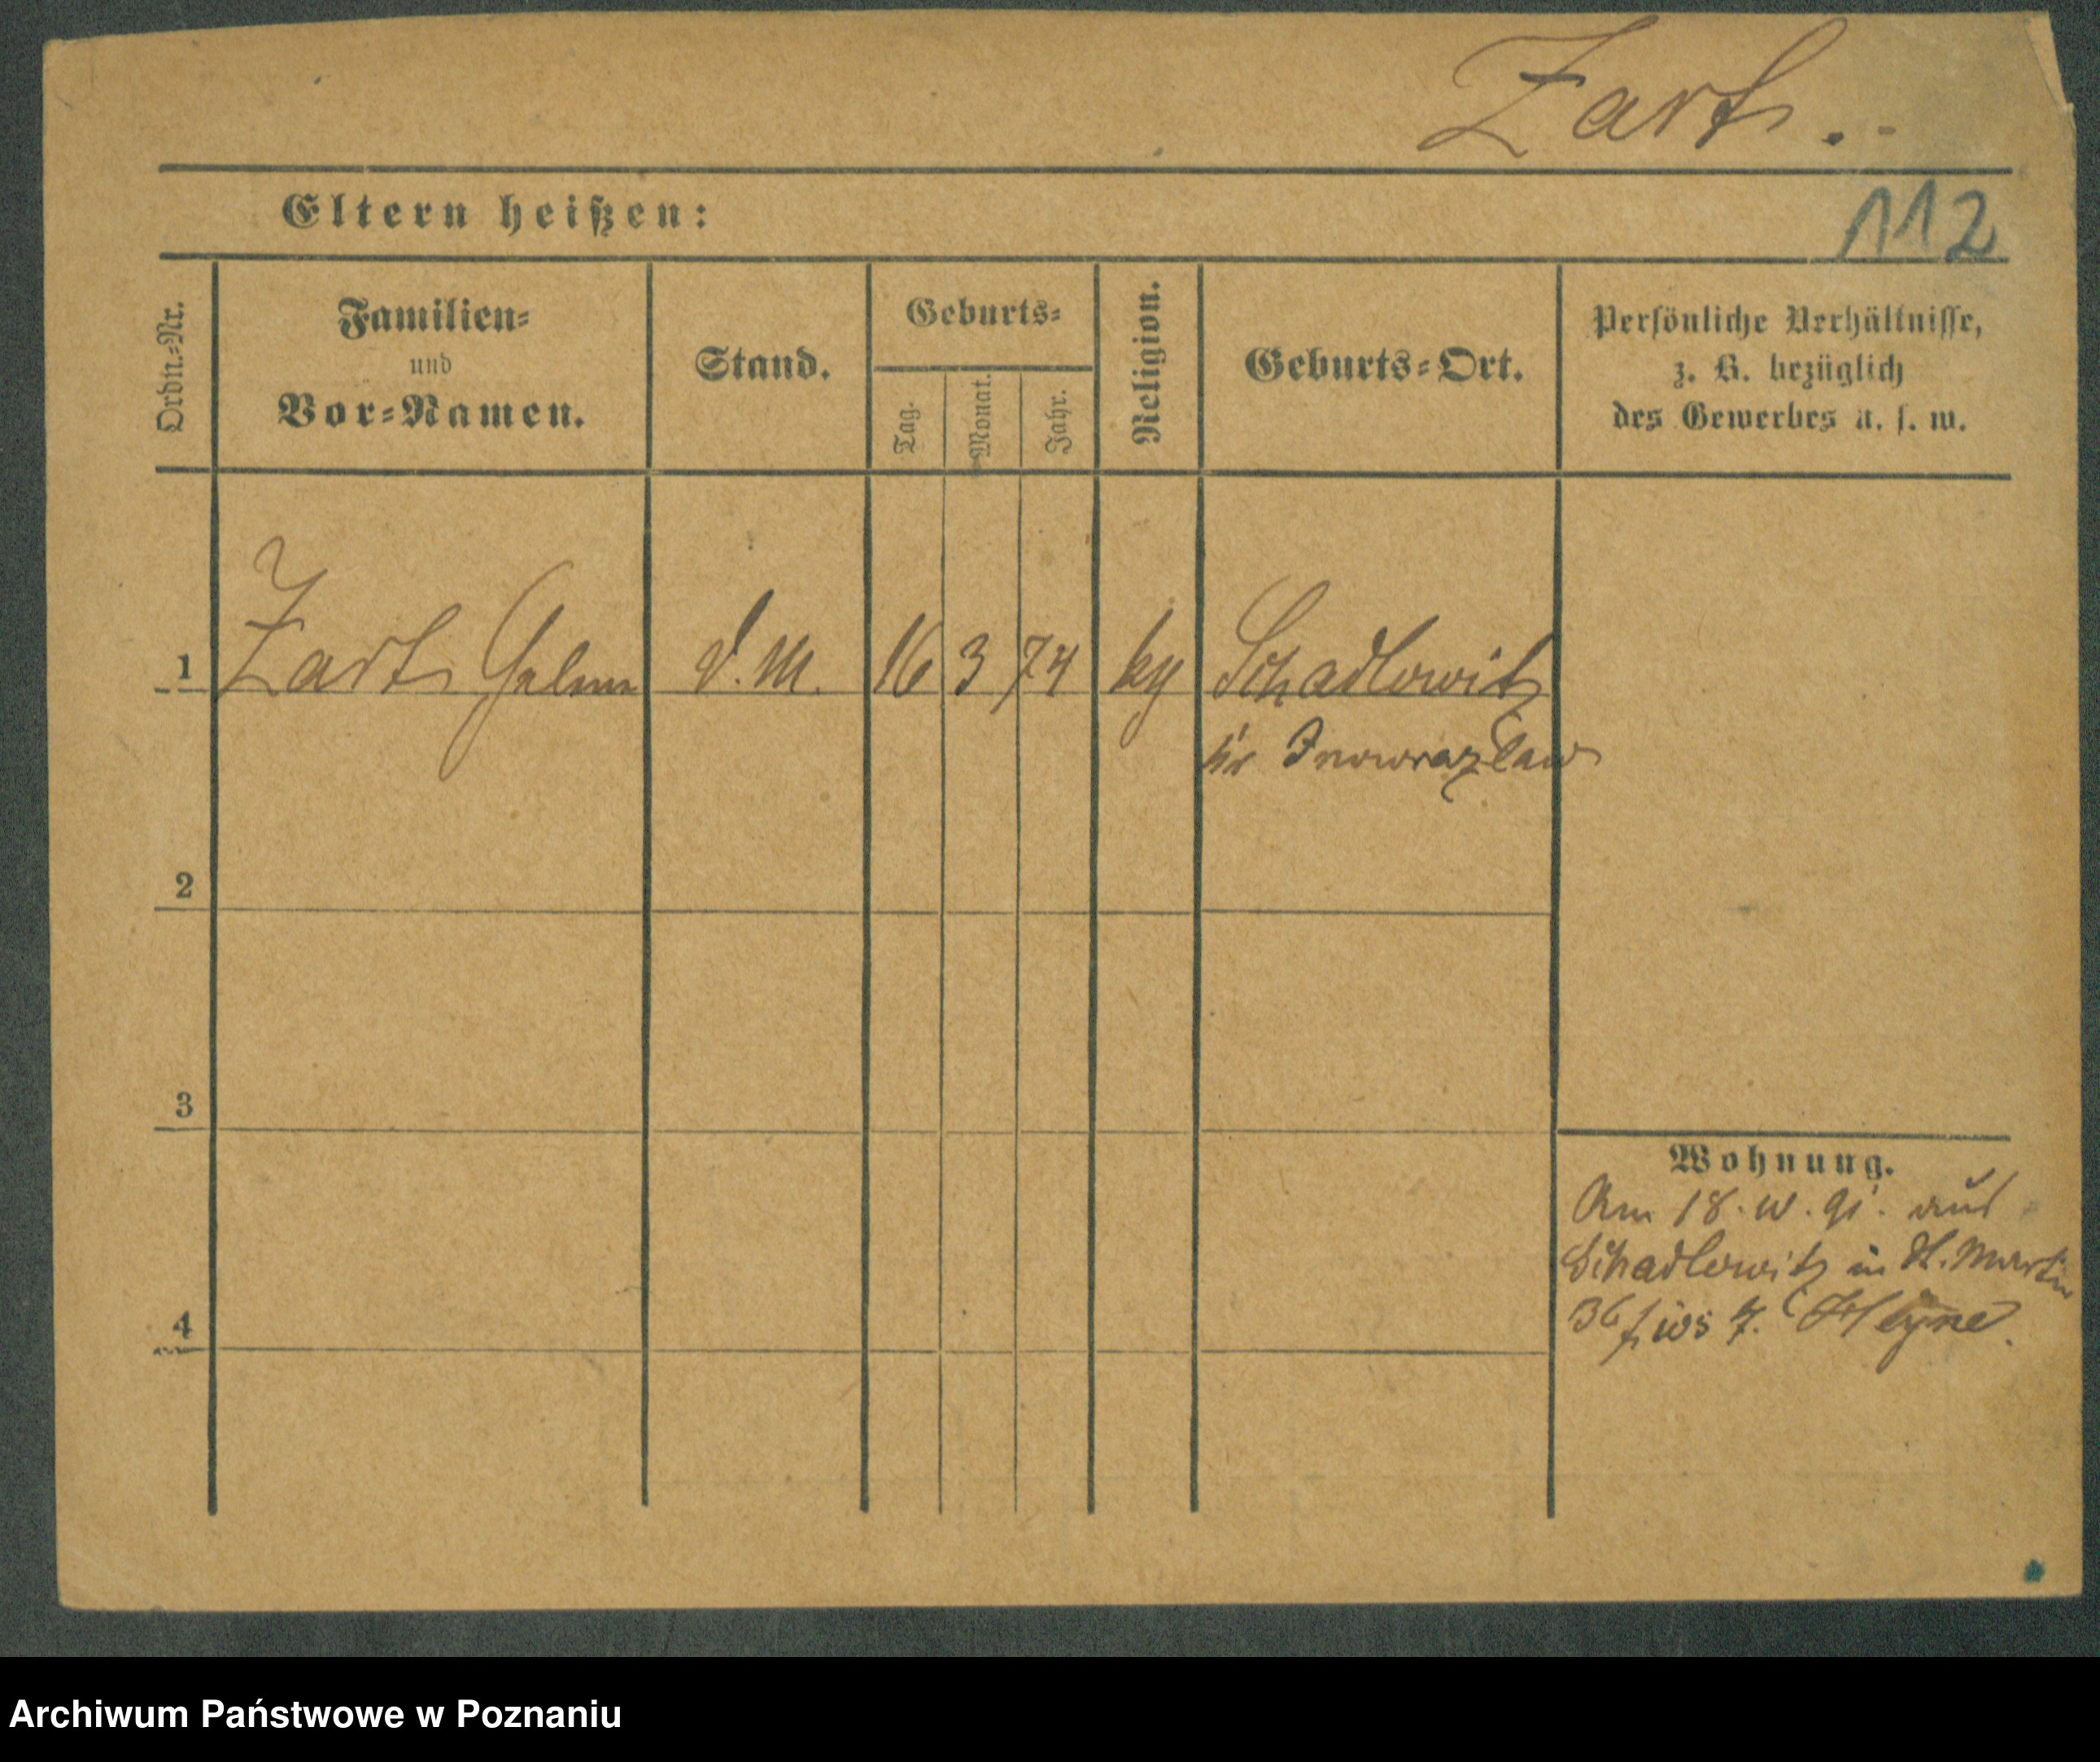 Zarth..
Eltern heißen:
112
Ordn.-Nr.
Familien-
und
Vor-Namen.
Stand.
Geburts-
Tag.
Monat.
Jahr.
Religion.
Geburts-Ort.
Persönliche Verhältnisse,
z. B. bezüglich
des Gewerbes u. s. w.
1 Zarth d. M. 16 3 74 Schadlowitz
Kr Inowrazlaw
2
3
4
Wohnung.
Am 18. aus
Schadlowitz in St. Martin
36 Heyne.
Archiwum Państwowe w Poznaniu